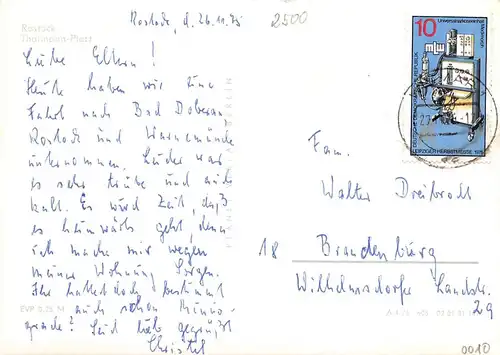 Rostock
Thälmann-Platz
Rostock, d. 26.11.75
2500
Liebe Eltern!
Heute haben wir eine
Fahrt nach Bad Doberan
Rostock und Warnemünde
unternommen. Leider war
es sehr trübe und auch
kalt. Es wird Zeit, daß
es heimwärts geht, denn
ich mache mir wegen
meiner Wohnung Sorgen.
Ihr hattet doch bestimmt
auch schon Minus-
grade? Seid lieb gegrüßt
Christel
10
DEUTSCHE DEMOKRATISCHE REPUBLIK
LEIPZIGER HERBSTMESSE 1975
Fam.
Walter Dreibrodt
18 Brandenburg
Wilhelmsdorfer Landstr.
29
EVP 0,25 M
0010